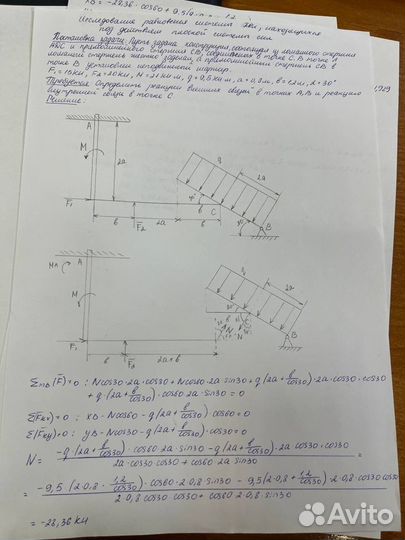 XB = -28,36 · cos60 + 9,5(2·
Исследование равновесия системы тел, находящейся
под действием плоской системы сил.
Постановка задачи: Пусть задана конструкция, состоящая из ломаного стержня
АКС и прямолинейного стержня CB, соединенных в точке C. В точке A
ломаный стержень жесткая заделка, а прямолинейный стержень CB в
точке B установлен неподвижный шарнир.
F₁ = 10 кН, F₂ = 20 кН, M = 21 кН·м, q = 9,5 кН/м, a = 0,8 м, b = 1,2 м, α = 30°
Требуется: Определить реакции внешних связей в точках A, B и реакцию
внутренней связи в точке C.
Решение:
A
M
2a
q
2a
F₁
b
F₂
2a
b
C
b
B
MA
A
M
q
2a
b
30°
N
B
F₁
b
F₂
2a+b
∑mB(F)=0 : Ncos30·2a·cos30+Ncos60·2a sin30+q(2a+b/cos30)·2a·cos30·cos30
+q(2a+b/cos30)·cos60·2a sin30=0
∑(Fкx)=0 : XB-Ncos60-q(2a+b/cos30)cos60=0
∑(Fкy)=0 : YB-Ncos30-q(2a+b/cos30)·cos30=0
N = -q(2a+b/cos30)·cos60·2a sin30-q(2a+b/cos30)·2a cos30 cos30 / 2a·cos30 cos30+cos60·2a sin30 =
= -9,5(2·0,8·1,2/cos30)·cos60·2·0,8 sin30-9,5(2·0,8+1,2/cos30)·2·0,8 cos30 cos30 / 2·0,8 cos30 cos30+cos60·2·0,8 sin30
= -28,36 кН
Avito